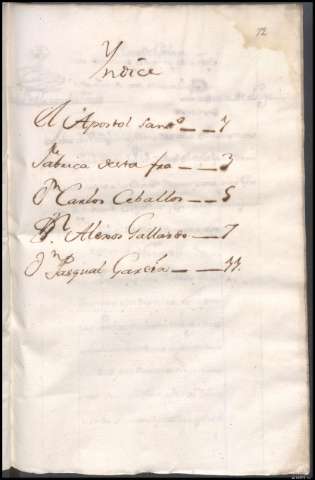 Yndice
Al Apostol Santº — 1
Fabrica desta — 3
Dn Carlos Ceballos — 5
Dn Alexos Gallardo — 7
Dn Pasqual Garcia — 11.